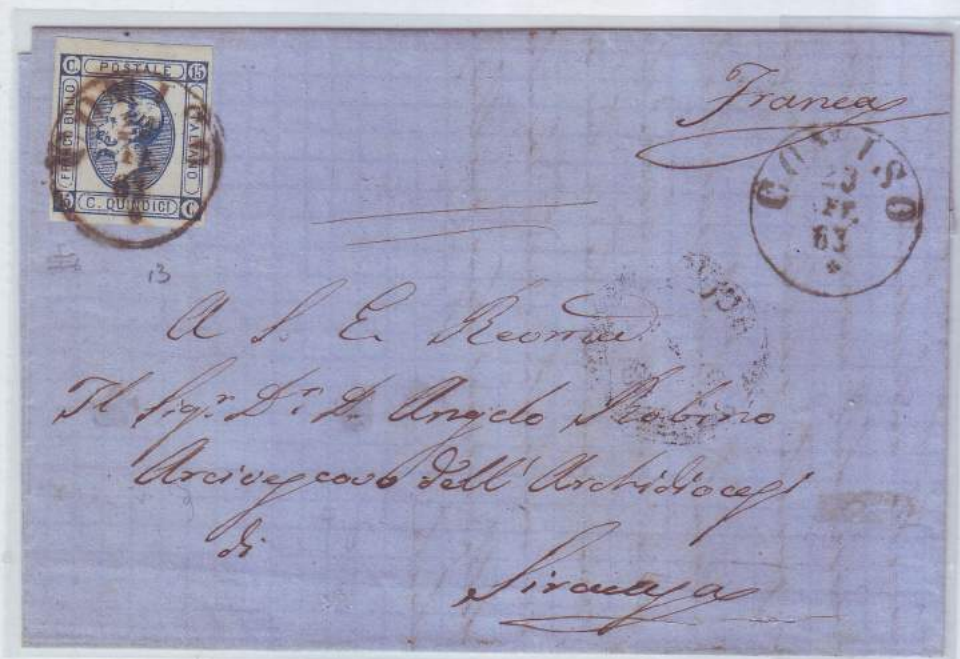 C. POSTALE 15
FRANCO BOLLO
ITALIANO
15 C. QUINDICI C.
Franca
COMISO
23
FE.
63
13
A S. E. Revma
Il Sigr. Dr. D. Angelo Robino
Arcivescovo dell'Archidiocesi
di
Siracusa